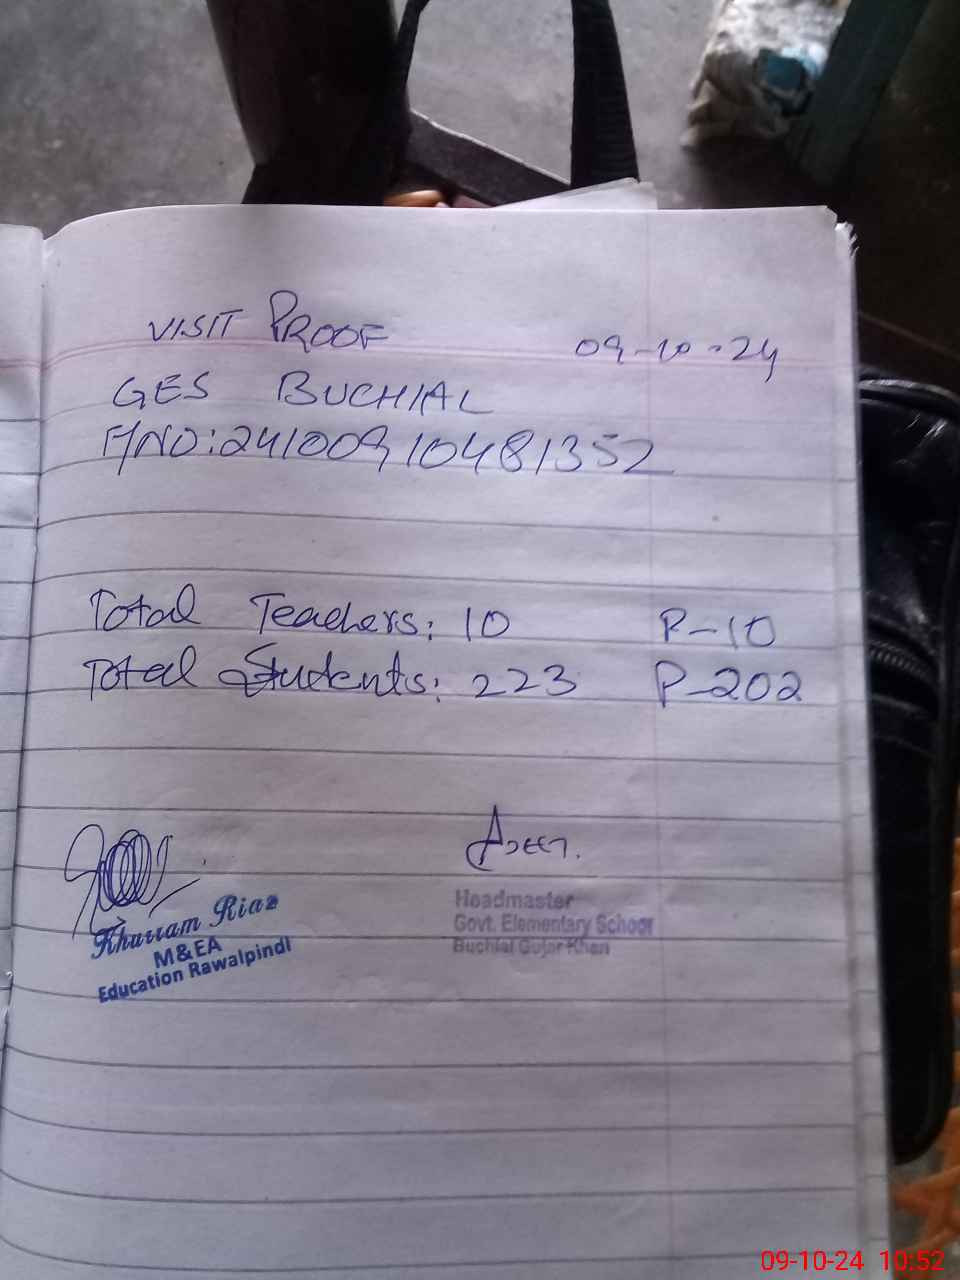 VISIT PROOF 09-10-24
GES BUCHIAL
F/NO: 24100910481352
Total Teachers: 10 P-10
Total Students: 223 P-202
Khurram Riaz
M&EA
Education Rawalpindi
Headmaster
Govt. Elementary School
Buchial Gujar Khan
09-10-24 10:52